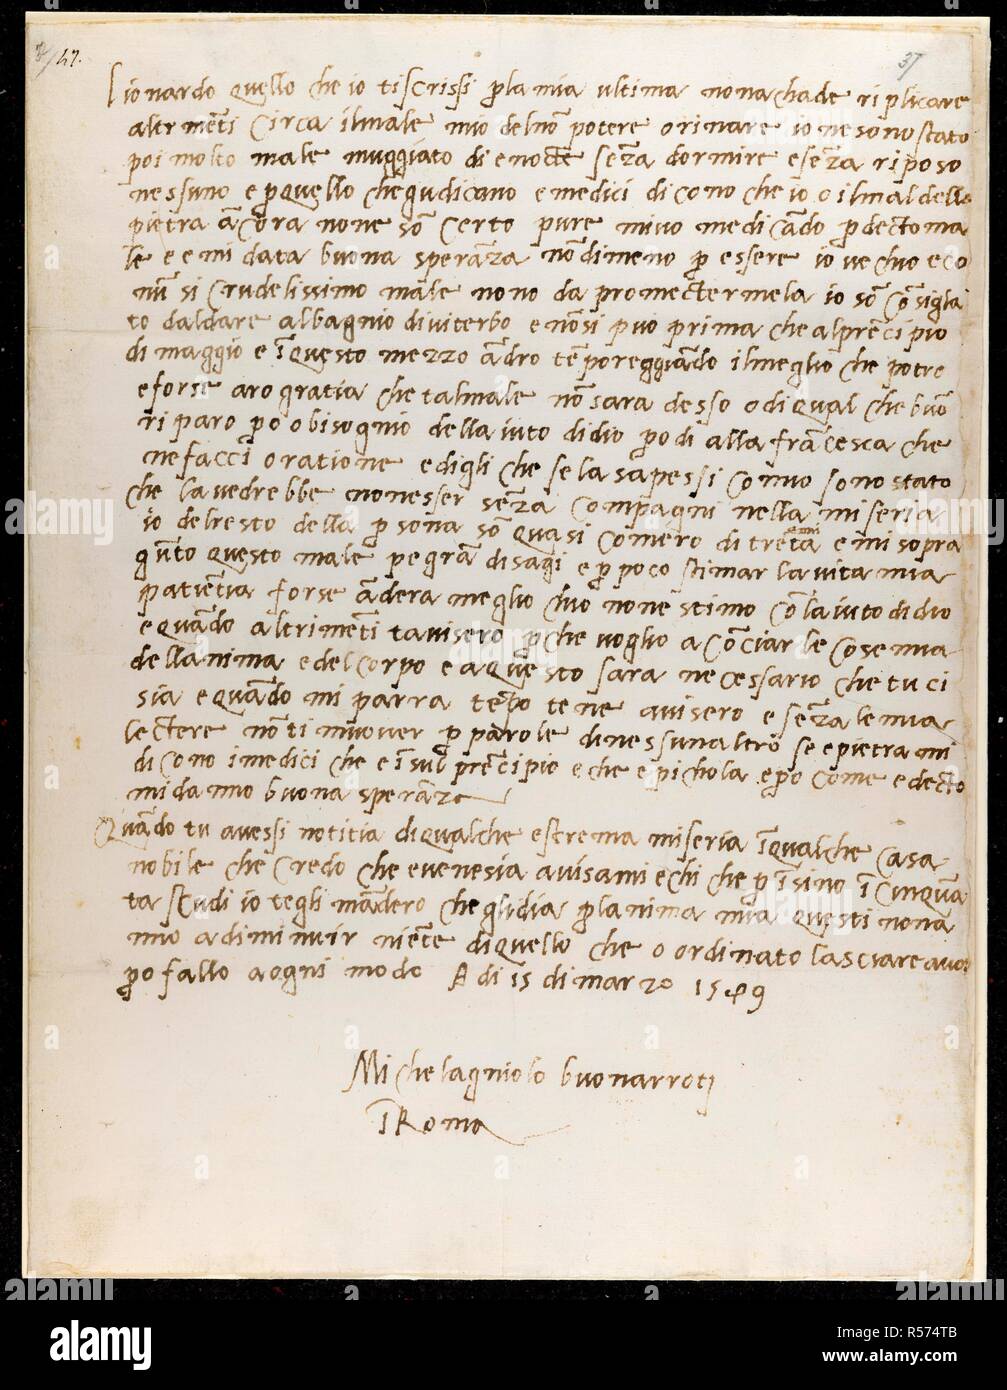 37
Lionardo quello che io ti scrissi p la mia ultima non achade riplicare
altrimēti circa il male mio del nō potere orinare io ne sono stato
poi molto male muggiato dì e nocte senza dormire e senza riposo
nessuno e p quello che gudicano e medici dicono che io o il mal della
pietra ācora none sō certo pure mi vo medicādo p decto ma
le e e mi data buona sperāza nōdimeno p essere io vechio e cō
un si crudelissimo male nono da promectermela io sō cōsiglia
to d'aldare al bagnio di viterbo e nō si può prima che al prēcipio
di maggio e ī questo mezzo ādro tēporeggiādo il meglio che potro
e forse aro gratia che tal male nō sara desso o di qual che buō
riparo po o bisognio della iuto di dio po di alla frācesca che
ne facci oratione e digli che se la sapessi comio sono stato
che la vedrebbe non esser senza compagni nella miseria
io del resto della psona sō quasi comero di trēta anni e mi sopra
giūto questo male pe grā disagi e p poco stimar la vita mia
patiētia forse ādera meglio chio none stimo cō la iuto di dio
e quādo altrimēti taviserò p che voglio acōciar le cose mia
dellanima e del corpo e a questo sara necessario che tu ci
sia e quādo mi parra tēpo te ne avisero e senza le mia
lectere nō ti muover p parole di nessunaltro se e pietra mi
dicono i medici che e ī sul prēcipio e che e pichola e po come e decto
mi danno buona speranza
Quādo tu avessi notitia di qualche estrema miseria ī qualche casa
nobile che credo che e ve ne sia avisami e chi che p īsino ī cinquā
ta scudi io te gli māderò che gli dia p lanima mia questi non ā
nno a diminuir niēte di quello che o ordinato lasciare a voi
po fallo a ogni modo A di 15 di marzo 1549
Michelagniolo buonarroti
ī Roma
alamy
Image ID: R574TB
www.alamy.com